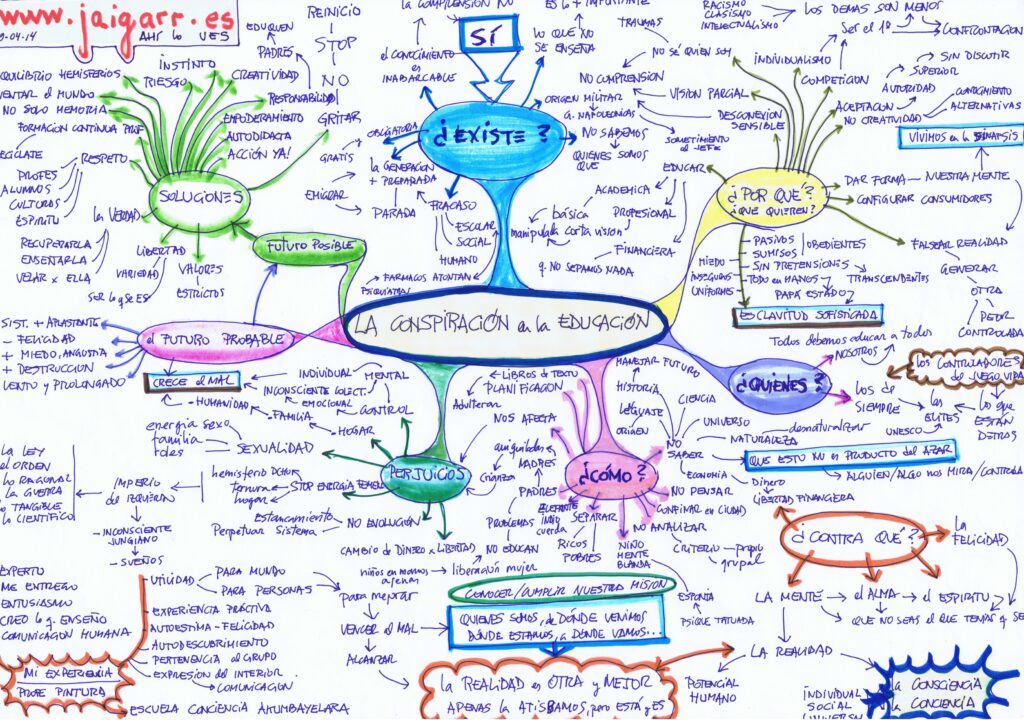 www.jaigarr.es
9-04-14
AHÍ lo VES
REINICIO
STOP
NO
GRITAR
EDUQUEN
PADRES
INSTINTO
RIESGO
CREATIVIDAD
RESPONSABILIDAD
EMPODERAMIENTO
AUTODIDACTA
ACCIÓN YA!
EQUILIBRIO HEMISFERIOS
VENTAR EL MUNDO
NO SOLO MEMORIA
FORMACIÓN CONTINUA PROF
RECÍCLATE
RESPETO
PROFES
ALUMNOS
CULTURAS
ESPÍRITU
la VERDAD
RECUPERARLA
ENSEÑARLA
VELAR x ELLA
LIBERTAD
VARIEDAD
SER lo q SE ES
VALORES
ESTRICTOS
SOLUCIONES
FUTURO POSIBLE
la COMPRENSIÓN NO
SÍ
ES lo + IMPORTANTE
el CONOCIMIENTO
ES
INABARCABLE
lo QUE NO
SE ENSEÑA
TRAUMAS
NO SÉ QUIEN SOY
NO COMPRENSIÓN
ORIGEN MILITAR
G. NAPOLEÓNICAS
VISIÓN PARCIAL
DESCONEXIÓN
SENSIBLE
SOMETIMIENTO
al -JEFE-
¿EXISTE?
OBLIGATORIA
GRATIS
la GENERACIÓN
+ PREPARADA
EMIGRAR
PARADA
FRACASO
ESCOLAR
SOCIAL
HUMANO
FÁRMACOS ATONTAN
PSIQUIATRAS
NO SABEMOS
QUIENES SOMOS
QUE
EDUCAR
ACADÉMICA
PROFESIONAL
FINANCIERA
básica
manipulada corta visión
q. NO SEPAMOS NADA
RACISMO
CLASISMO
INTELECTUALISMO
LOS DEMÁS SON MENOS
SER el 1º
CONFRONTACIÓN
INDIVIDUALISMO
COMPETICIÓN
SIN DISCUTIR
SUPERIOR
ACEPTACIÓN
AUTORIDAD
NO CREATIVIDAD
CONOCIMIENTO
ALTERNATIVAS
VIVIMOS en la SINAPSIS
¿POR QUÉ?
¿QUÉ QUIEREN?
DAR FORMA
NUESTRA MENTE
CONFIGURAR CONSUMIDORES
FALSEAR REALIDAD
GENERAR
OTRA
PEOR
CONTROLADA
PASIVOS
SUMISOS
OBEDIENTES
MIEDO
SIN PRETENSIONES
INSEGUROS
TODO en MANOS
TRANSCENDENTES
UNIFORMES
PAPÁ ESTADO
ESCLAVITUD SOFISTICADA
LA CONSPIRACIÓN en la EDUCACIÓN
SIST. + APLASTANTE
- FELICIDAD
+ MIEDO, ANGUSTIA
+ DESTRUCCIÓN
LENTO y PROLONGADO
el FUTURO PROBABLE
CRECE el MAL
INDIVIDUAL
MENTAL
INCONSCIENTE COLECT.
EMOCIONAL
-HUMANIDAD
-FAMILIA
-HOGAR
CONTROL
Todos debemos educar a todos
NOSOTROS
¿QUIENES?
los CONTROLADORES
del JUEGO VIDA
los DE
SIEMPRE
las
ÉLITES
UNESCO
los que
ESTÁN
DETRÁS
LIBROS de TEXTO
PLANIFICACIÓN
Adulteran
MANEJAR FUTURO
HISTORIA
lenguaje
ORIGEN
NO
SABER
CIENCIA
UNIVERSO
desnaturalizar
NATURALEZA
QUE ESTO NO ES PRODUCTO del AZAR
ALGUIEN/ALGO nos MIRA/CONTROLA
ECONOMÍA
Dinero
LIBERTAD FINANCIERA
energía sexo
familia
roles
SEXUALIDAD
hemisferio DCHO
ternura
hogar
STOP ENERGÍA FEMEN
Estancamiento
Perpetuar Sistema
NO EVOLUCIÓN
PERJUICIOS
CAMBIO de DINERO x LIBERTAD
NOS AFECTA
aniquiladas
MADRES
crianza
PADRES
PROBLEMAS
NO EDUCAN
liberación mujer
niños en manos
ajenas
¿CÓMO?
ELEFANTE
INDIO
cuerda
SEPARAR
RICOS
POBRES
NIÑO
MENTE
BLANDA
NO PENSAR
CONFINAR en CIUDAD
NO ANALIZAR
CRITERIO
propio
grupal
ESPONJA
PSIQUE TATUADA
¿CONTRA QUÉ?
LA
FELICIDAD
LA MENTE
el ALMA
el ESPÍRITU
QUE NO SEAS el QUE TENÍAS q SE
LA REALIDAD
LA LEY
el ORDEN
lo RACIONAL
LA GUERRA
lo TANGIBLE
lo CIENTÍFICO
IMPERIO
del
IZQUIERDO
INCONSCIENTE
JUNGIANO
SUEÑOS
EXPERTO
ME ENTREGO
ENTUSIASMO
CREO lo q. ENSEÑO
COMUNICACIÓN HUMANA
MI EXPERIENCIA
PROFE PINTURA
UTILIDAD
PARA MUNDO
PARA PERSONAS
EXPERIENCIA PRÁCTICA
AUTOESTIMA - FELICIDAD
AUTODESCUBRIMIENTO
PERTENENCIA al GRUPO
EXPRESIÓN del INTERIOR
COMUNICACIÓN
ESCUELA CONCIENCIA AHUMBAYELARA
Para mejorar
VENCER el MAL
ALCANZAR
CONOCER/CUMPLIR NUESTRA MISIÓN
QUIENES SOMOS, de DÓNDE VENIMOS
DÓNDE ESTAMOS, A DÓNDE VAMOS...
la REALIDAD es OTRA y MEJOR
APENAS la ATISBAMOS, pero ESTÁ y ES
POTENCIAL
HUMANO
INDIVIDUAL
SOCIAL
UNIVERSAL
LA CONSCIENCIA
LA CONCIENCIA